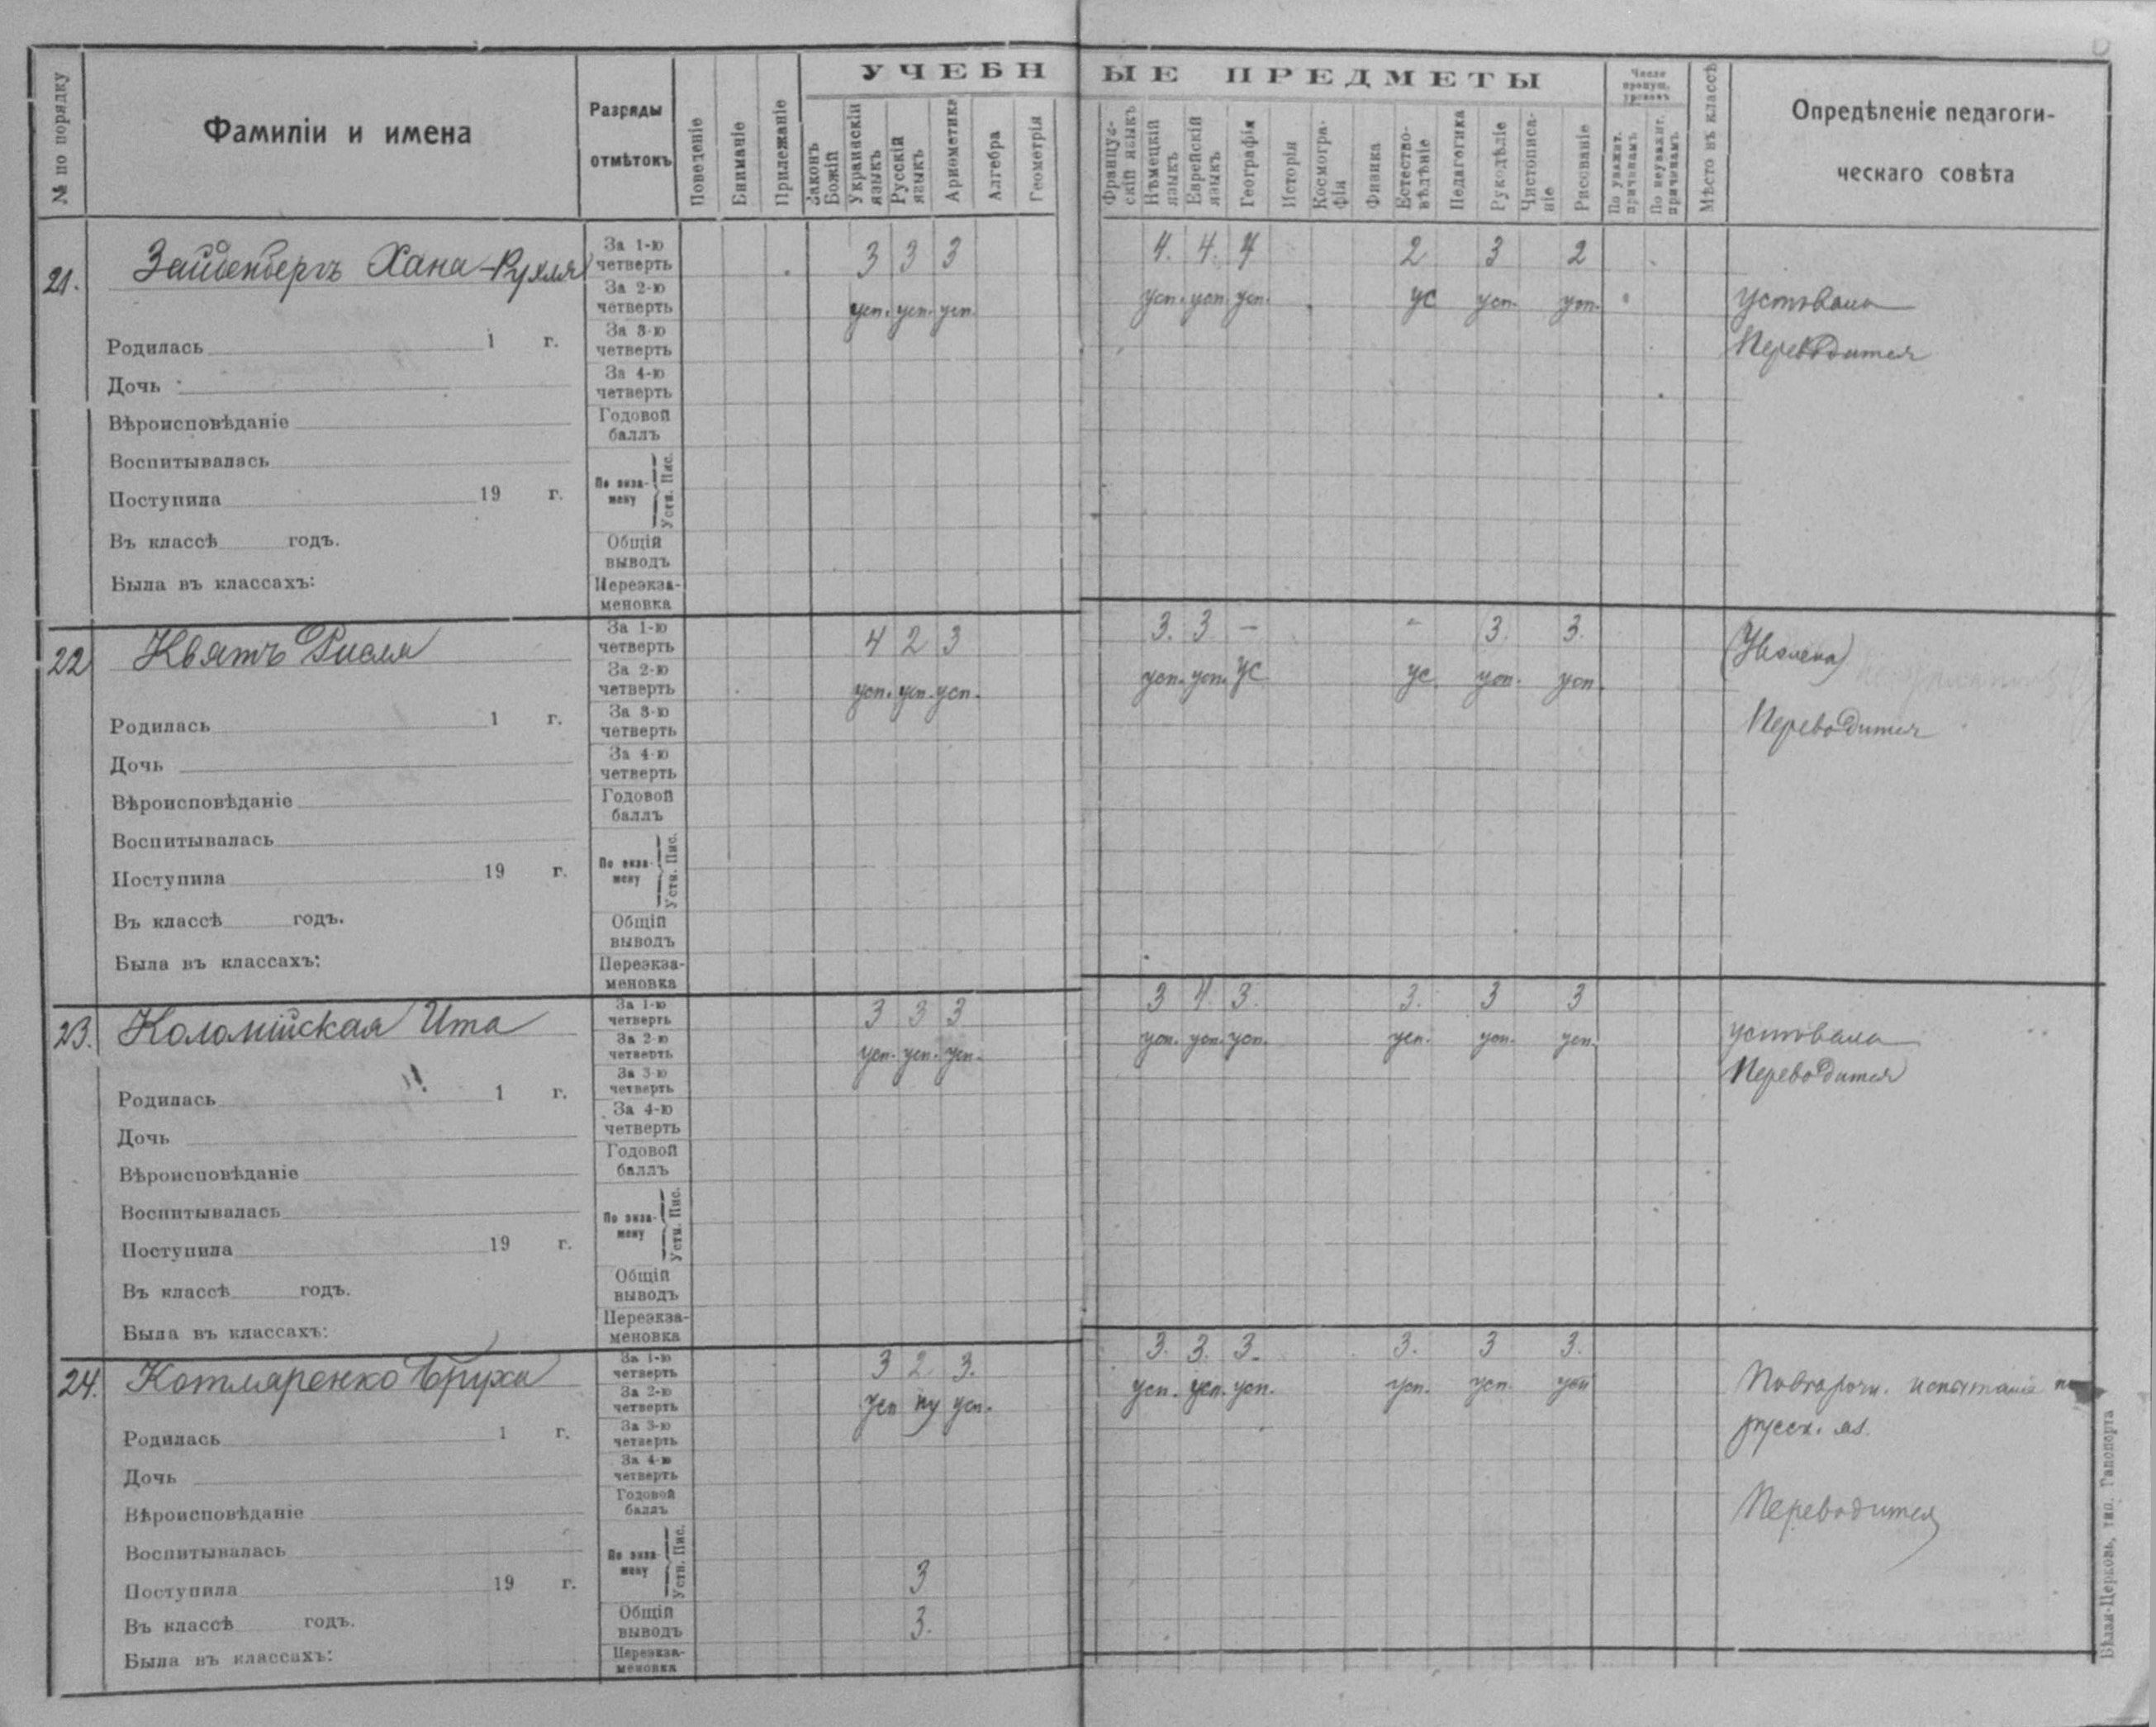 УЧЕБНЫЕ ПРЕДМЕТЫ
№ по порядку
Фамиліи и имена
Разряды отмѣтокъ
Поведеніе
Вниманіе
Прилежаніе
Законъ Божій
Украинскій языкъ
Русскій языкъ
Ариѳметика
Алгебра
Геометрія
Француз-скій языкъ
Нѣмецкій языкъ
Еврейскій языкъ
Географія
Исторія
Космогра-фія
Физика
Естество-вѣдѣніе
Педагогика
Рукодѣліе
Чистописа-ніе
Рисованіе
Число пропущ. уроковъ
По уважит. причинамъ
По неуважит. причинамъ
Мѣсто въ классѣ
Опредѣленіе педагоги-
ческаго совѣта
21. Зайденбергъ Хана-Рухля
За 1-ю четверть 3 3 3 4. 4. 4 2 3 2
За 2-ю четверть усп. усп. усп. усп. усп. усп. ус усп. усп.
За 3-ю четверть
За 4-ю четверть
Годовой баллъ
По экза-мену Устн. Пис.
Общій выводъ
Переэкза-меновка
Родилась 1 г.
Дочь
Вѣроисповѣданіе
Воспитывалась
Поступила 19 г.
Въ классѣ годъ.
Была въ классахъ:
Переводится
22 Квятъ Рисля
За 1-ю четверть 4 2 3 3. 3 – – 3. 3.
За 2-ю четверть усп. усп. усп. усп. усп. ус ус усп. усп.
За 3-ю четверть
За 4-ю четверть
Годовой баллъ
По экза-мену Устн. Пис.
Общій выводъ
Переэкза-меновка
Родилась 1 г.
Дочь
Вѣроисповѣданіе
Воспитывалась
Поступила 19 г.
Въ классѣ годъ.
Была въ классахъ:
Переводится
23. Коломійская Ита
За 1-ю четверть 3 3 3 3 4. 3. 3. 3 3
За 2-ю четверть усп. усп. усп. усп. усп. усп. усп. усп. усп.
За 3-ю четверть
За 4-ю четверть
Годовой баллъ
По экза-мену Устн. Пис.
Общій выводъ
Переэкза-меновка
Родилась 1 г.
Дочь
Вѣроисповѣданіе
Воспитывалась
Поступила 19 г.
Въ классѣ годъ.
Была въ классахъ:
Переводится
24. Котляренко Бруха
За 1-ю четверть 3 2 3. 3. 3. 3. 3. 3 3.
За 2-ю четверть усп ну усп. усп. усп. усп. усп. усп усп
За 3-ю четверть
За 4-ю четверть
Годовой баллъ
По экза-мену Устн. Пис. 3
Общій выводъ 3.
Переэкза-меновка
Родилась 1 г.
Дочь
Вѣроисповѣданіе
Воспитывалась
Поступила 19 г.
Въ классѣ годъ.
Была въ классахъ:
испытаніе по
русск. яз.
Переводится
Бѣлая-Церковь, тип. Гапопорта